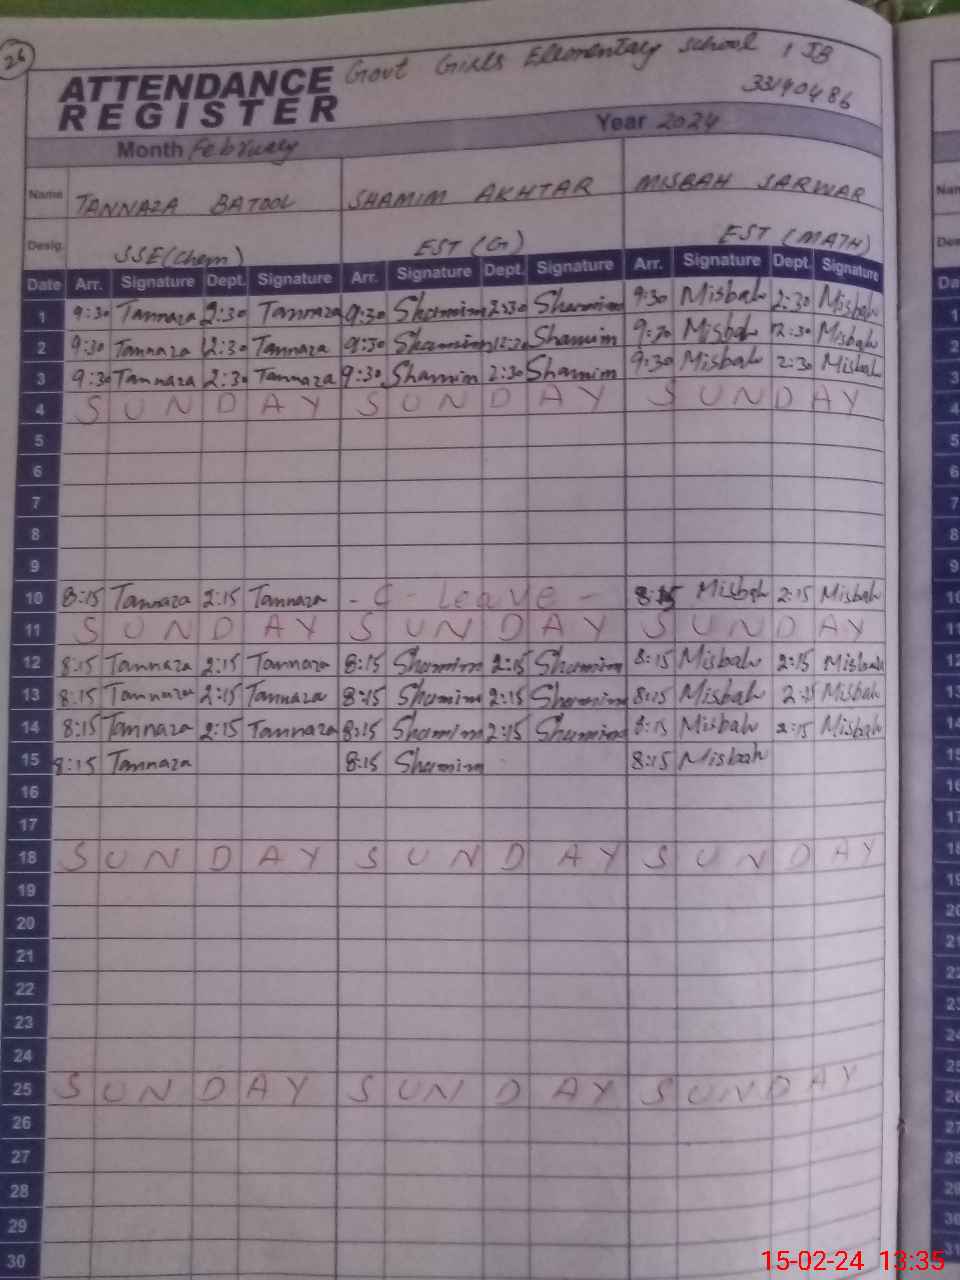 26
Govt Girls Ellementary School 1 JB
ATTENDANCE
REGISTER
33190486
Month February Year 2024
Name TANNAZA BATOOL SHAMIM AKHTAR MISBAH SARWAR
Desig. SSE(Chem) EST (G) EST (MATH)
Date Arr. Signature Dept. Signature Arr. Signature Dept. Signature Arr. Signature Dept. Signature
1 9:30 Tannaza 2:30 Tannaza 9:30 Shamim 2:30 Shamim 9:30 Misbah 2:30 Misbah
2 9:30 Tannaza 12:30 Tannaza 9:30 Shamim 12:30 Shamim 9:30 Misbah 12:30 Misbah
3 9:30 Tannaza 2:30 Tannaza 9:30 Shamim 2:30 Shamim 9:30 Misbah 2:30 Misbah
4 SUNDAY SUNDAY SUNDAY
5
6
7
8
9
10 8:15 Tannaza 2:15 Tannaza - C - Leave - 8:15 Misbah 2:15 Misbah
11 SUNDAY SUNDAY SUNDAY
12 8:15 Tannaza 2:15 Tannaza 8:15 Shamim 2:15 Shamim 8:15 Misbah 2:15 Misbah
13 8:15 Tannaza 2:15 Tannaza 8:15 Shamim 2:15 Shamim 8:15 Misbah 2:15 Misbah
14 8:15 Tannaza 2:15 Tannaza 8:15 Shamim 2:15 Shamim 8:15 Misbah 2:15 Misbah
15 8:15 Tannaza 8:15 Shamim 8:15 Misbah
16
17
18 SUNDAY SUNDAY SUNDAY
19
20
21
22
23
24
25 SUNDAY SUNDAY SUNDAY
26
27
28
29
30
15-02-24 13:35